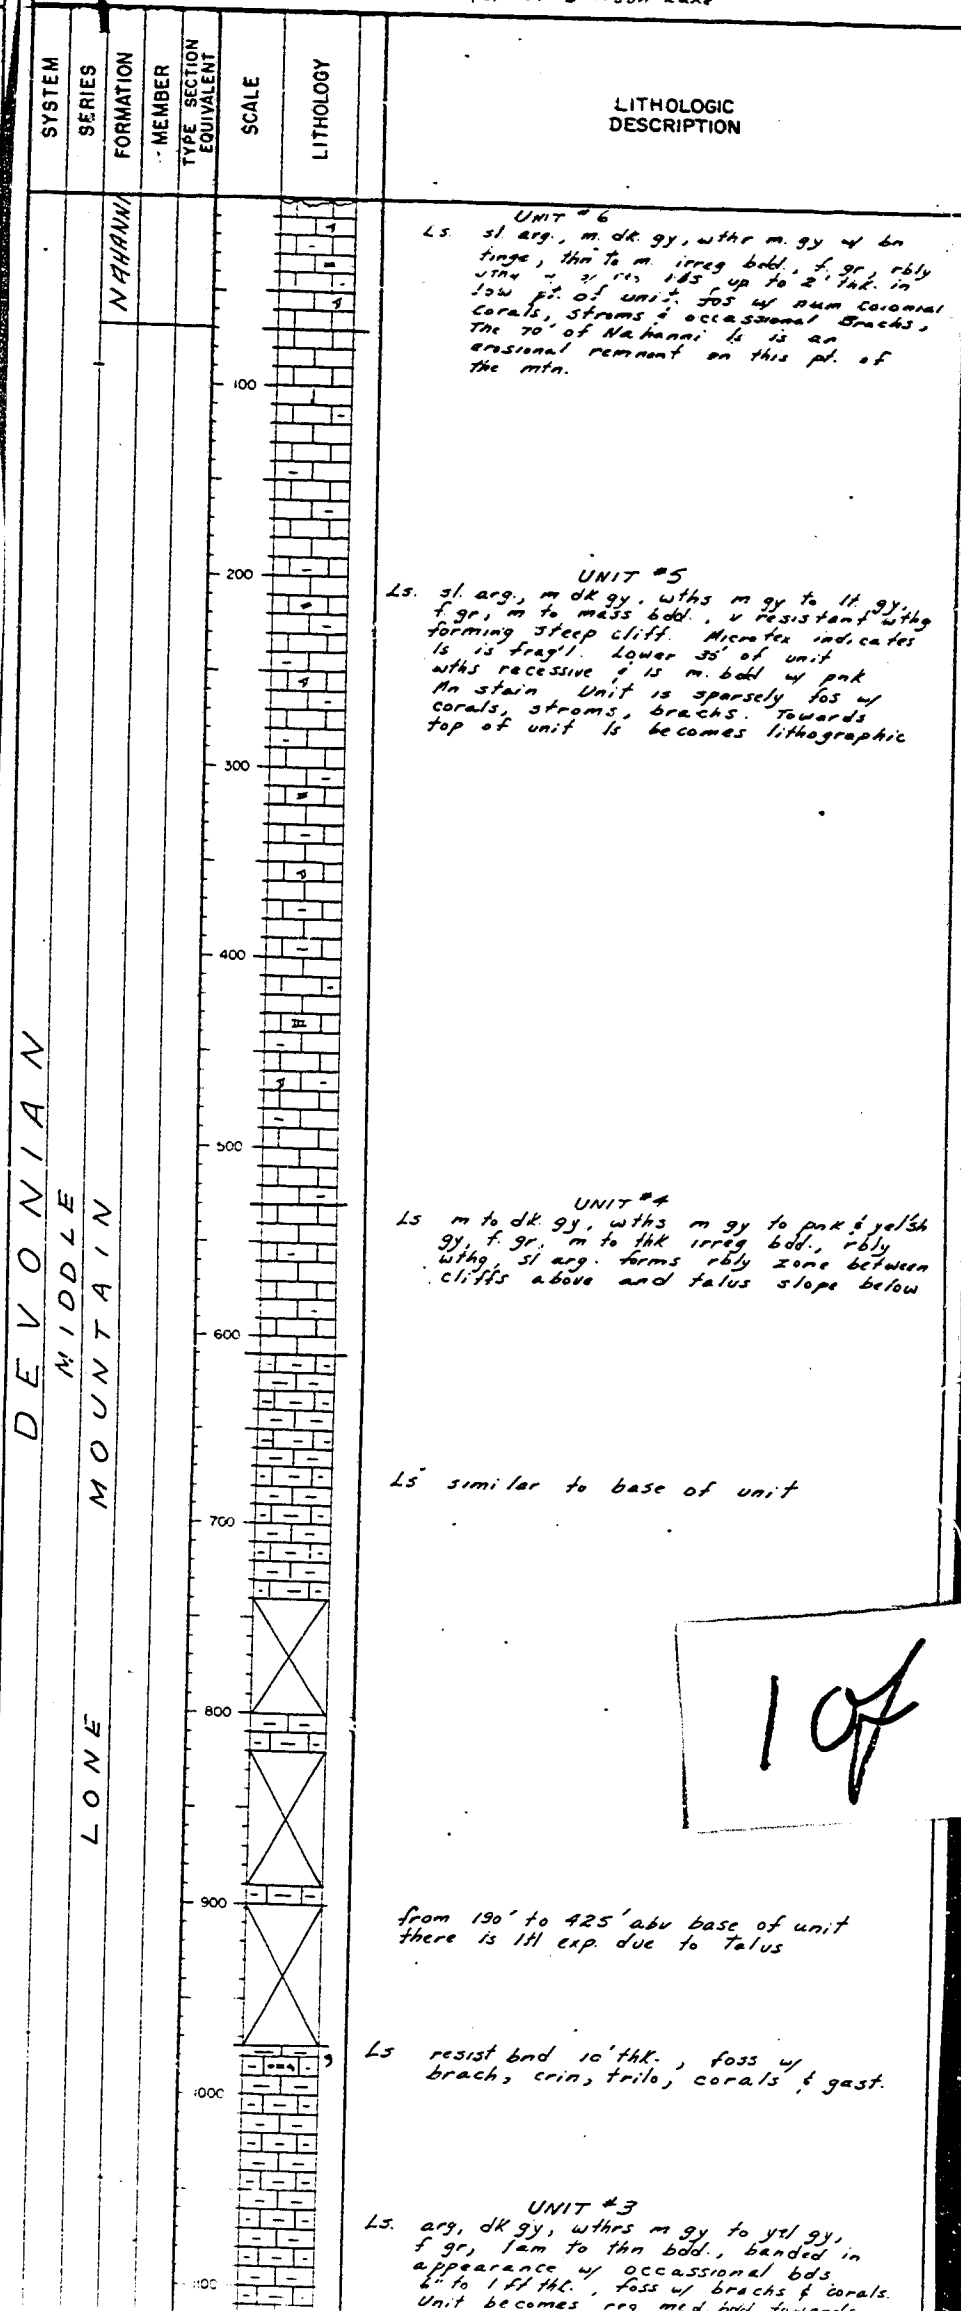 SYSTEM
SERIES
FORMATION
MEMBER
TYPE SECTION
EQUIVALENT
SCALE
LITHOLOGY
LITHOLOGIC
DESCRIPTION
NAHANNI
DEVONIAN
MIDDLE
LONE MOUNTAIN
UNIT #6
Ls. sl. arg., m. dk. gy, wthr m. gy w/ bn
tinge, thn to m. irreg bdd., f. gr, rbly
up to 2' thk. in
low pt. of unit. fos w/ num colonial
corals, stroms & occassional Brachs,
The 70' of Nahanni ls is an
erosional remnant on this pt. of
the mtn.
100
200
UNIT #5
Ls. sl. arg., m dk gy, wths m gy to lt. gy,
f. gr, m to mass bdd., v resistant wthg
forming steep cliff. Microtex indicates
ls is frag'l. Lower 35' of unit
wths recessive & is m. bdd w/ pnk
Mn stain Unit is sparsely fos w/
corals, stroms, brachs. Towards
top of unit ls becomes lithographic
300
400
500
UNIT #4
Ls m to dk. gy, wths m gy to pnk & yel'sh
gy, f. gr, m to thk irreg bdd., rbly
wthg, sl arg. forms rbly zone between
cliffs above and talus slope below
600
Ls similar to base of unit
700
800
1 of
900
from 190' to 425' abv base of unit
there is ltl exp. due to Talus
Ls resist bnd 10' thk., foss w/
brach, crin, trilo, corals & gast.
1000
UNIT #3
Ls. arg, dk gy, wthrs m gy to yel gy,
f gr, lam to thn bdd., banded in
appearance w/ occassional bds
6" to 1 ft thk., foss w/ brachs & corals.
1100
Unit becomes reg med. bdd towards